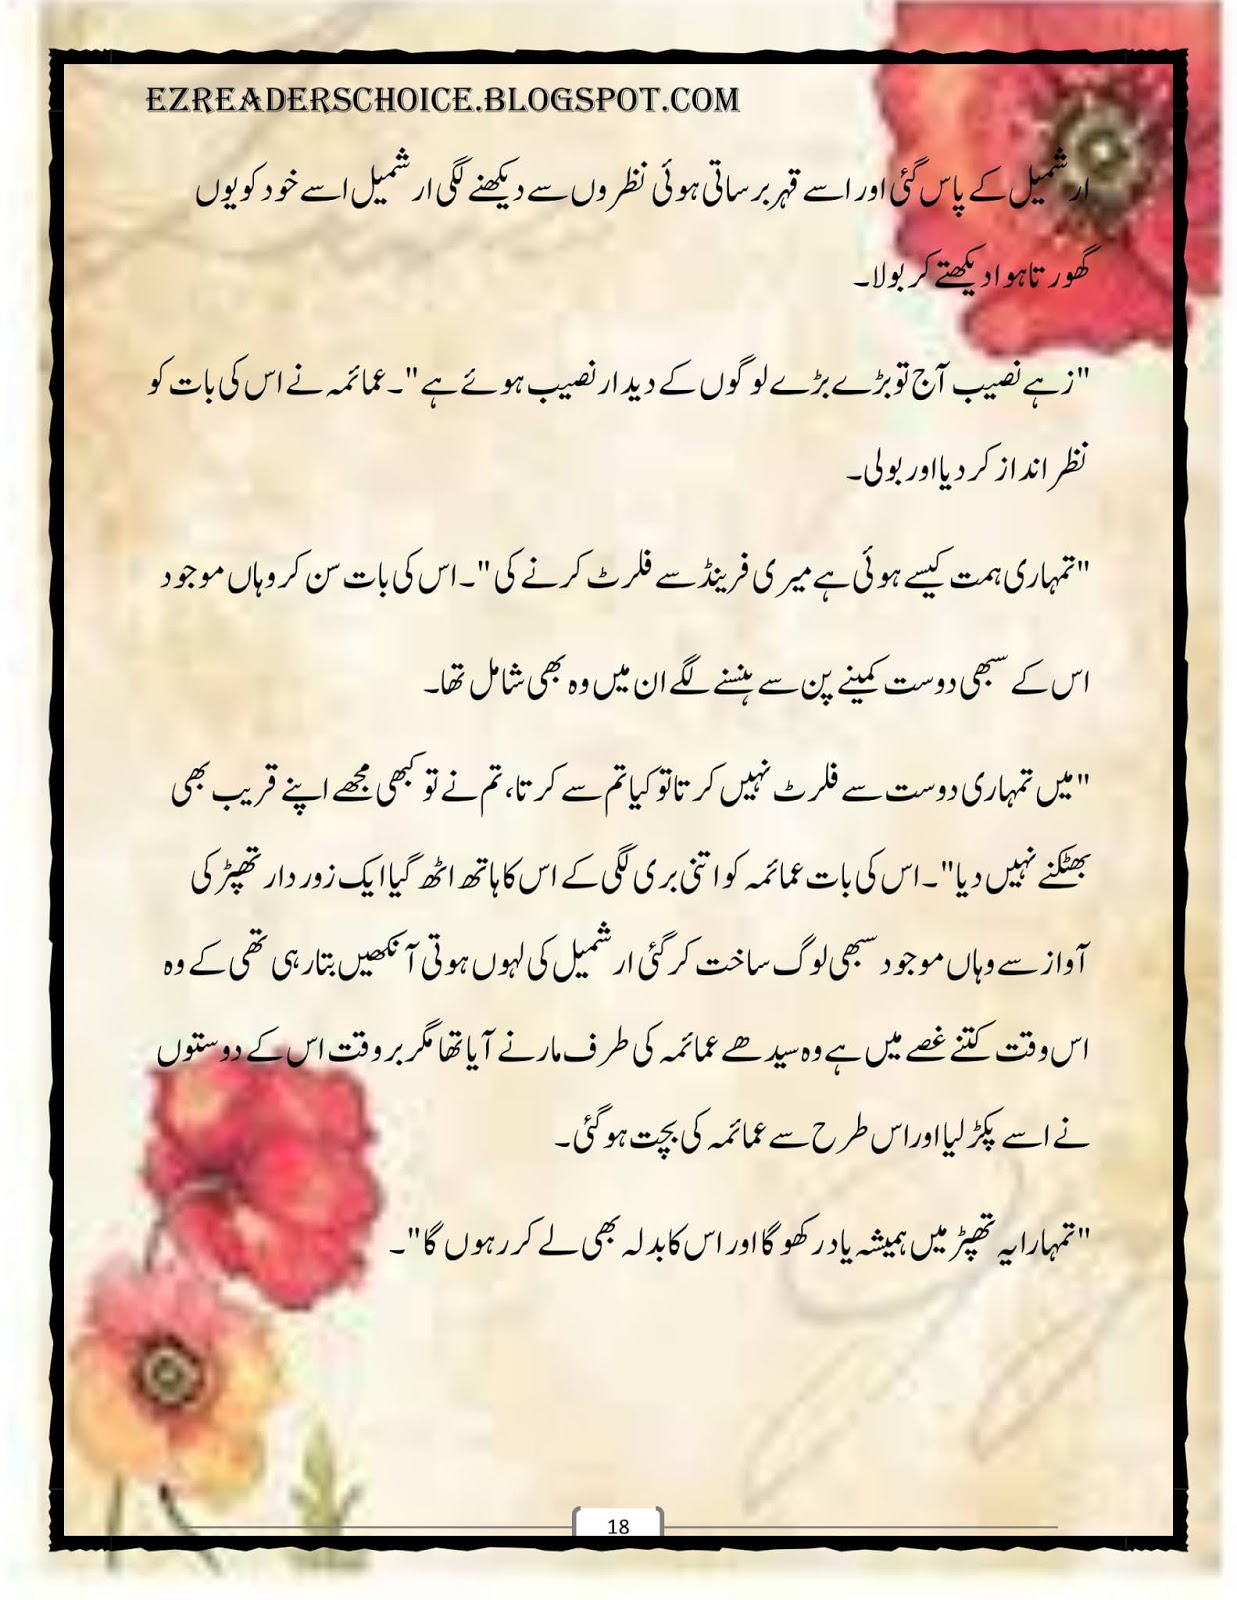 EZREADERSCHOICE.BLOGSPOT.COM
ارشمیل کے پاس گئی اور اسے قہر برساتی ہوئی نظروں سے دیکھنے لگی ارشمیل اسے خود کو یوں
گھورتا ہوا دیکھتے کر بولا۔
"زہے نصیب آج تو بڑے بڑے لوگوں کے دیدار نصیب ہوئے ہے"۔ عمائمہ نے اس کی بات کو
نظر انداز کر دیا اور بولی۔
"تمہاری ہمت کیسے ہوئی ہے میری فرینڈ سے فلرٹ کرنے کی"۔ اس کی بات سن کر وہاں موجود
اس کے سبھی دوست کمینے پن سے ہنسنے لگے ان میں وہ بھی شامل تھا۔
"میں تمہاری دوست سے فلرٹ نہیں کرتا تو کیا تم سے کرتا، تم نے تو کبھی مجھے اپنے قریب بھی
بھٹکنے نہیں دیا"۔ اس کی بات عمائمہ کو اتنی بری لگی کے اس کا ہاتھ اٹھ گیا ایک زور دار تھپڑ کی
آواز سے وہاں موجود سبھی لوگ ساخت کر گئی ارشمیل کی لہوں ہوتی آنکھیں بتا رہی تھی کے وہ
اس وقت کتنے غصے میں ہے وہ سیدھے عمائمہ کی طرف مارنے آیا تھا مگر بروقت اس کے دوستوں
نے اسے پکڑ لیا اور اس طرح سے عمائمہ کی بچت ہو گئی۔
"تمہارا یہ تھپڑ میں ہمیشہ یاد رکھو گا اور اس کا بدلہ بھی لے کر رہوں گا"۔
18